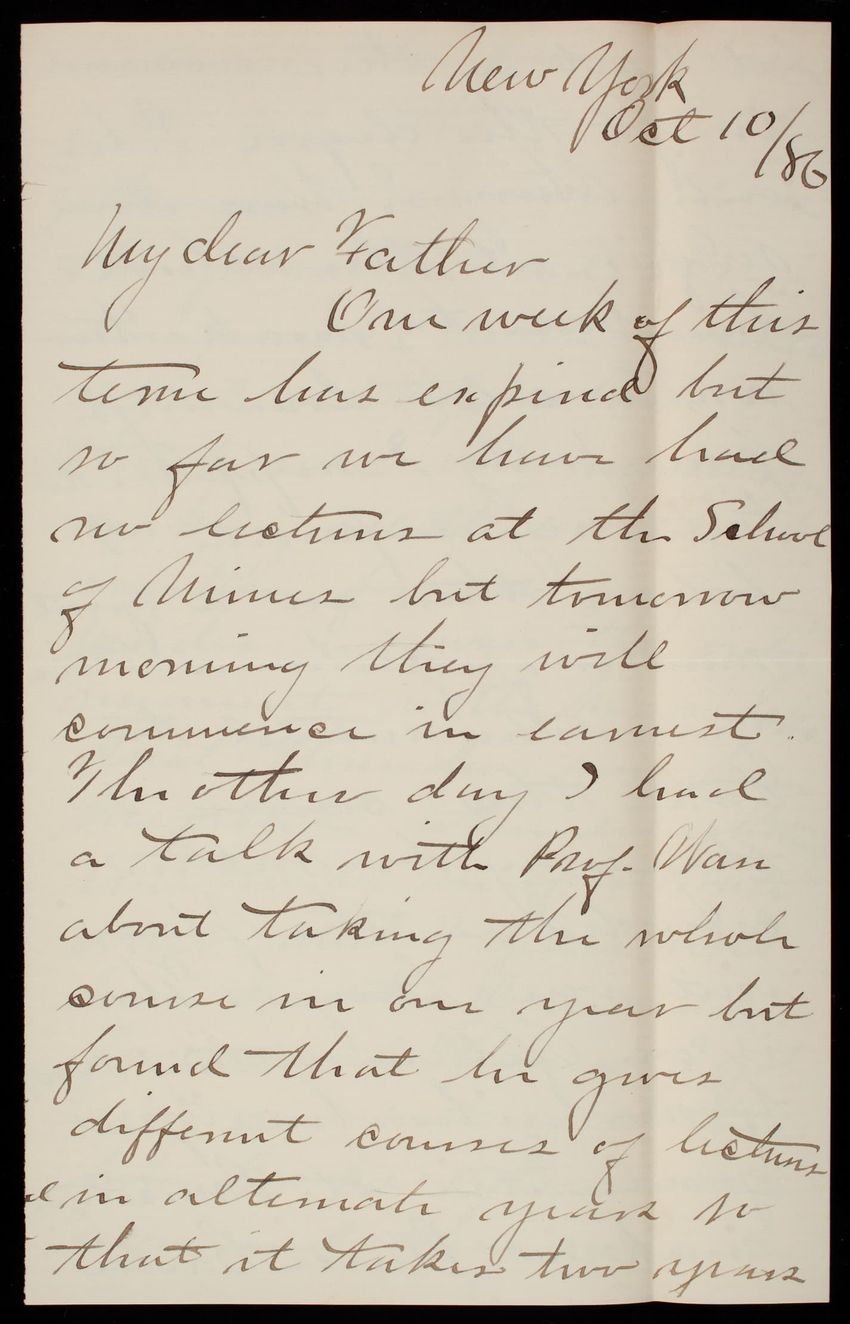 New York
Oct 10/86
My dear Father
One week of this
term has expired but
so far we have had
no lectures at the School
of Mines but tomorrow
morning they will
commence in earnest.
The other day I had
a talk with Prof. Ware
about taking the whole
course in one year but
found that he gives
different courses of lectures
in alternate years so
that it takes two years